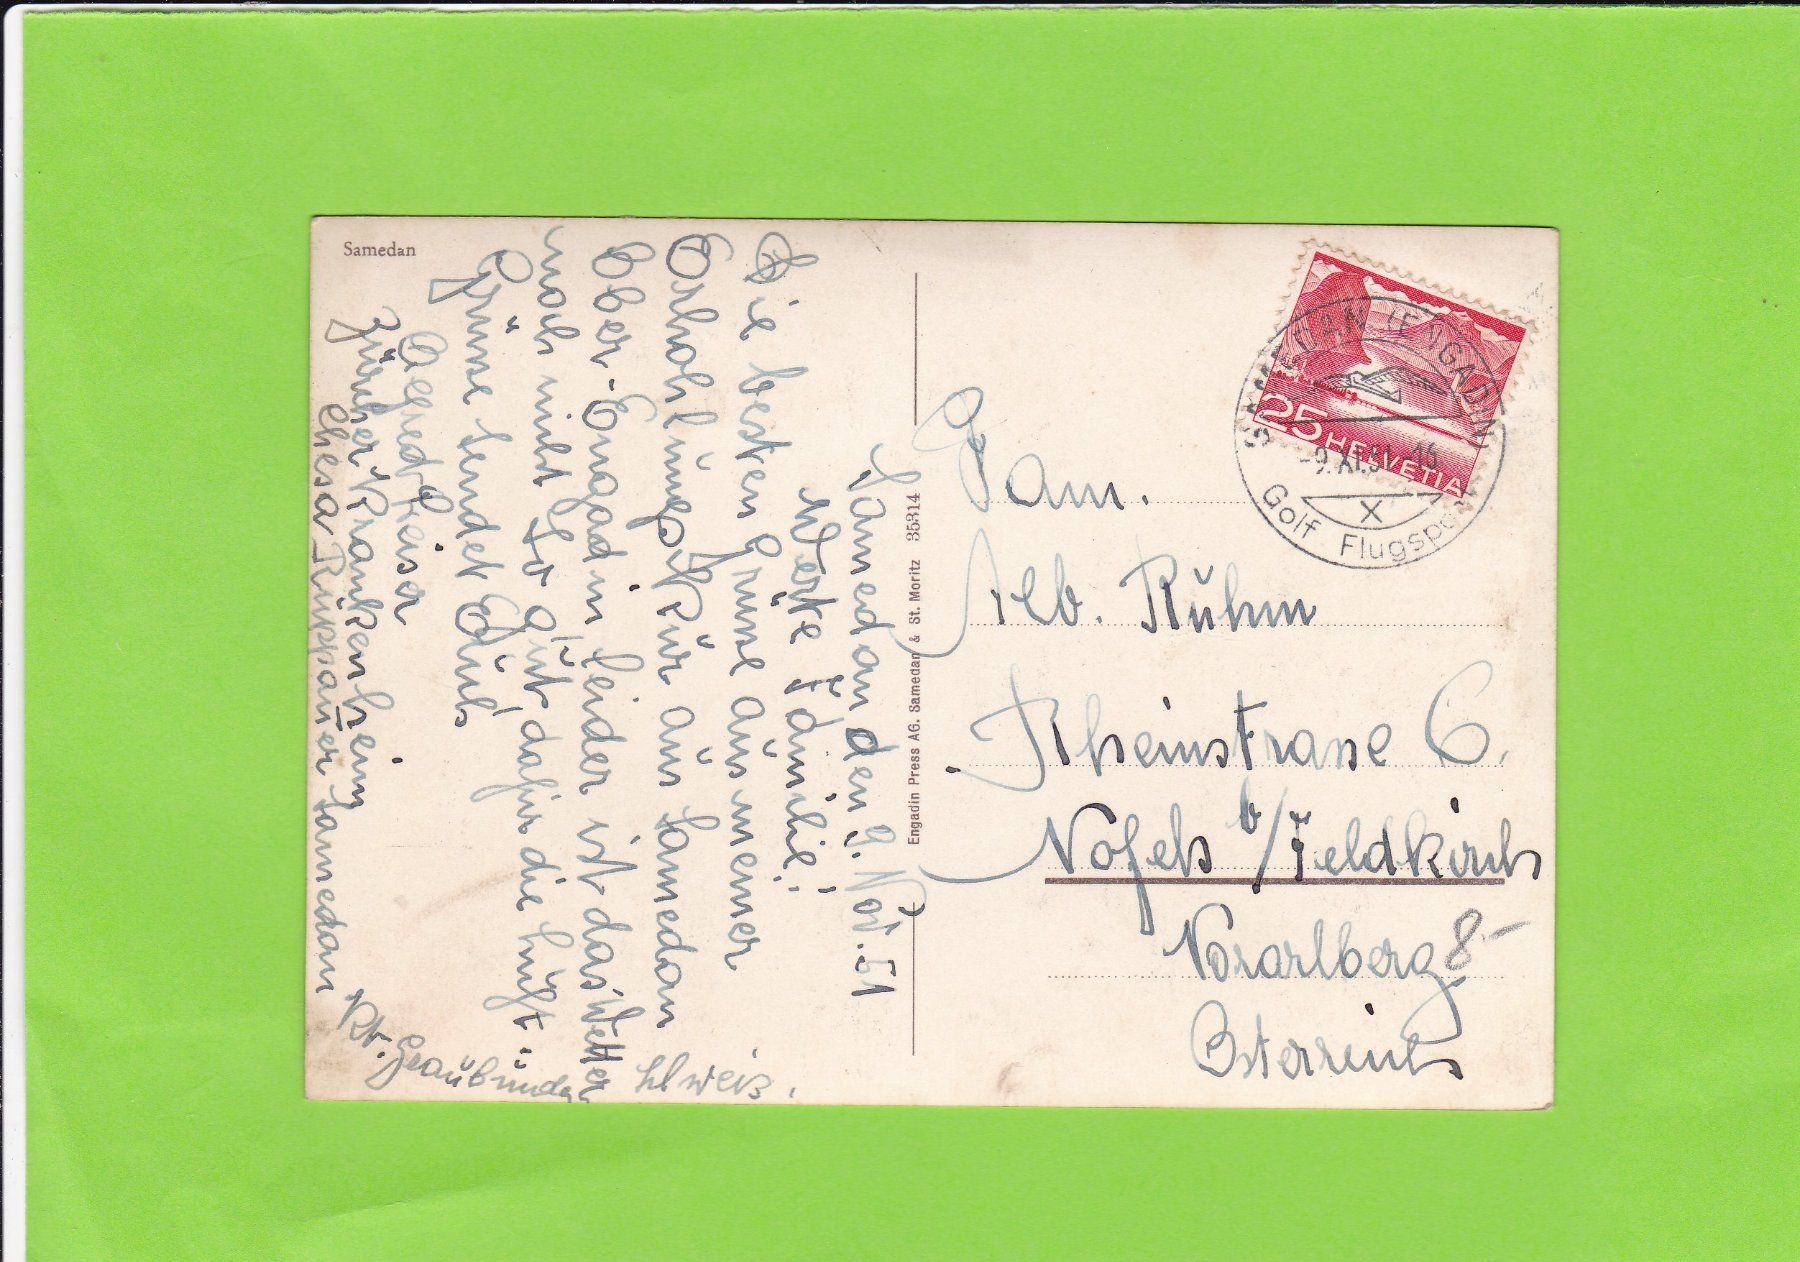 Samedan
Samedan den 9. Nov. 51
Werte Familie!
Die besten Grüsse aus meiner
Erholungskur aus Samedan
Ober-Engadin leider ist das Wetter
noch nicht so gut, dafür die Luft.
Grüsse sendet Euch
Alfred Reiser
Zürcher Krankenheim
Chesa Ruppaner Samedan
Kt. Graubünden Schweiz.
Engadin Press AG. Samedan & St. Moritz 35314
Fam.
Alb. Rühm
Rheinstrasse 6.
Nofels b/Feldkirch
Vorarlberg
8.-
Österreich
25 HELVETIA
SAMEDAN (ENGADIN)
-9.XI.51.-16
X
Golf Flugsport